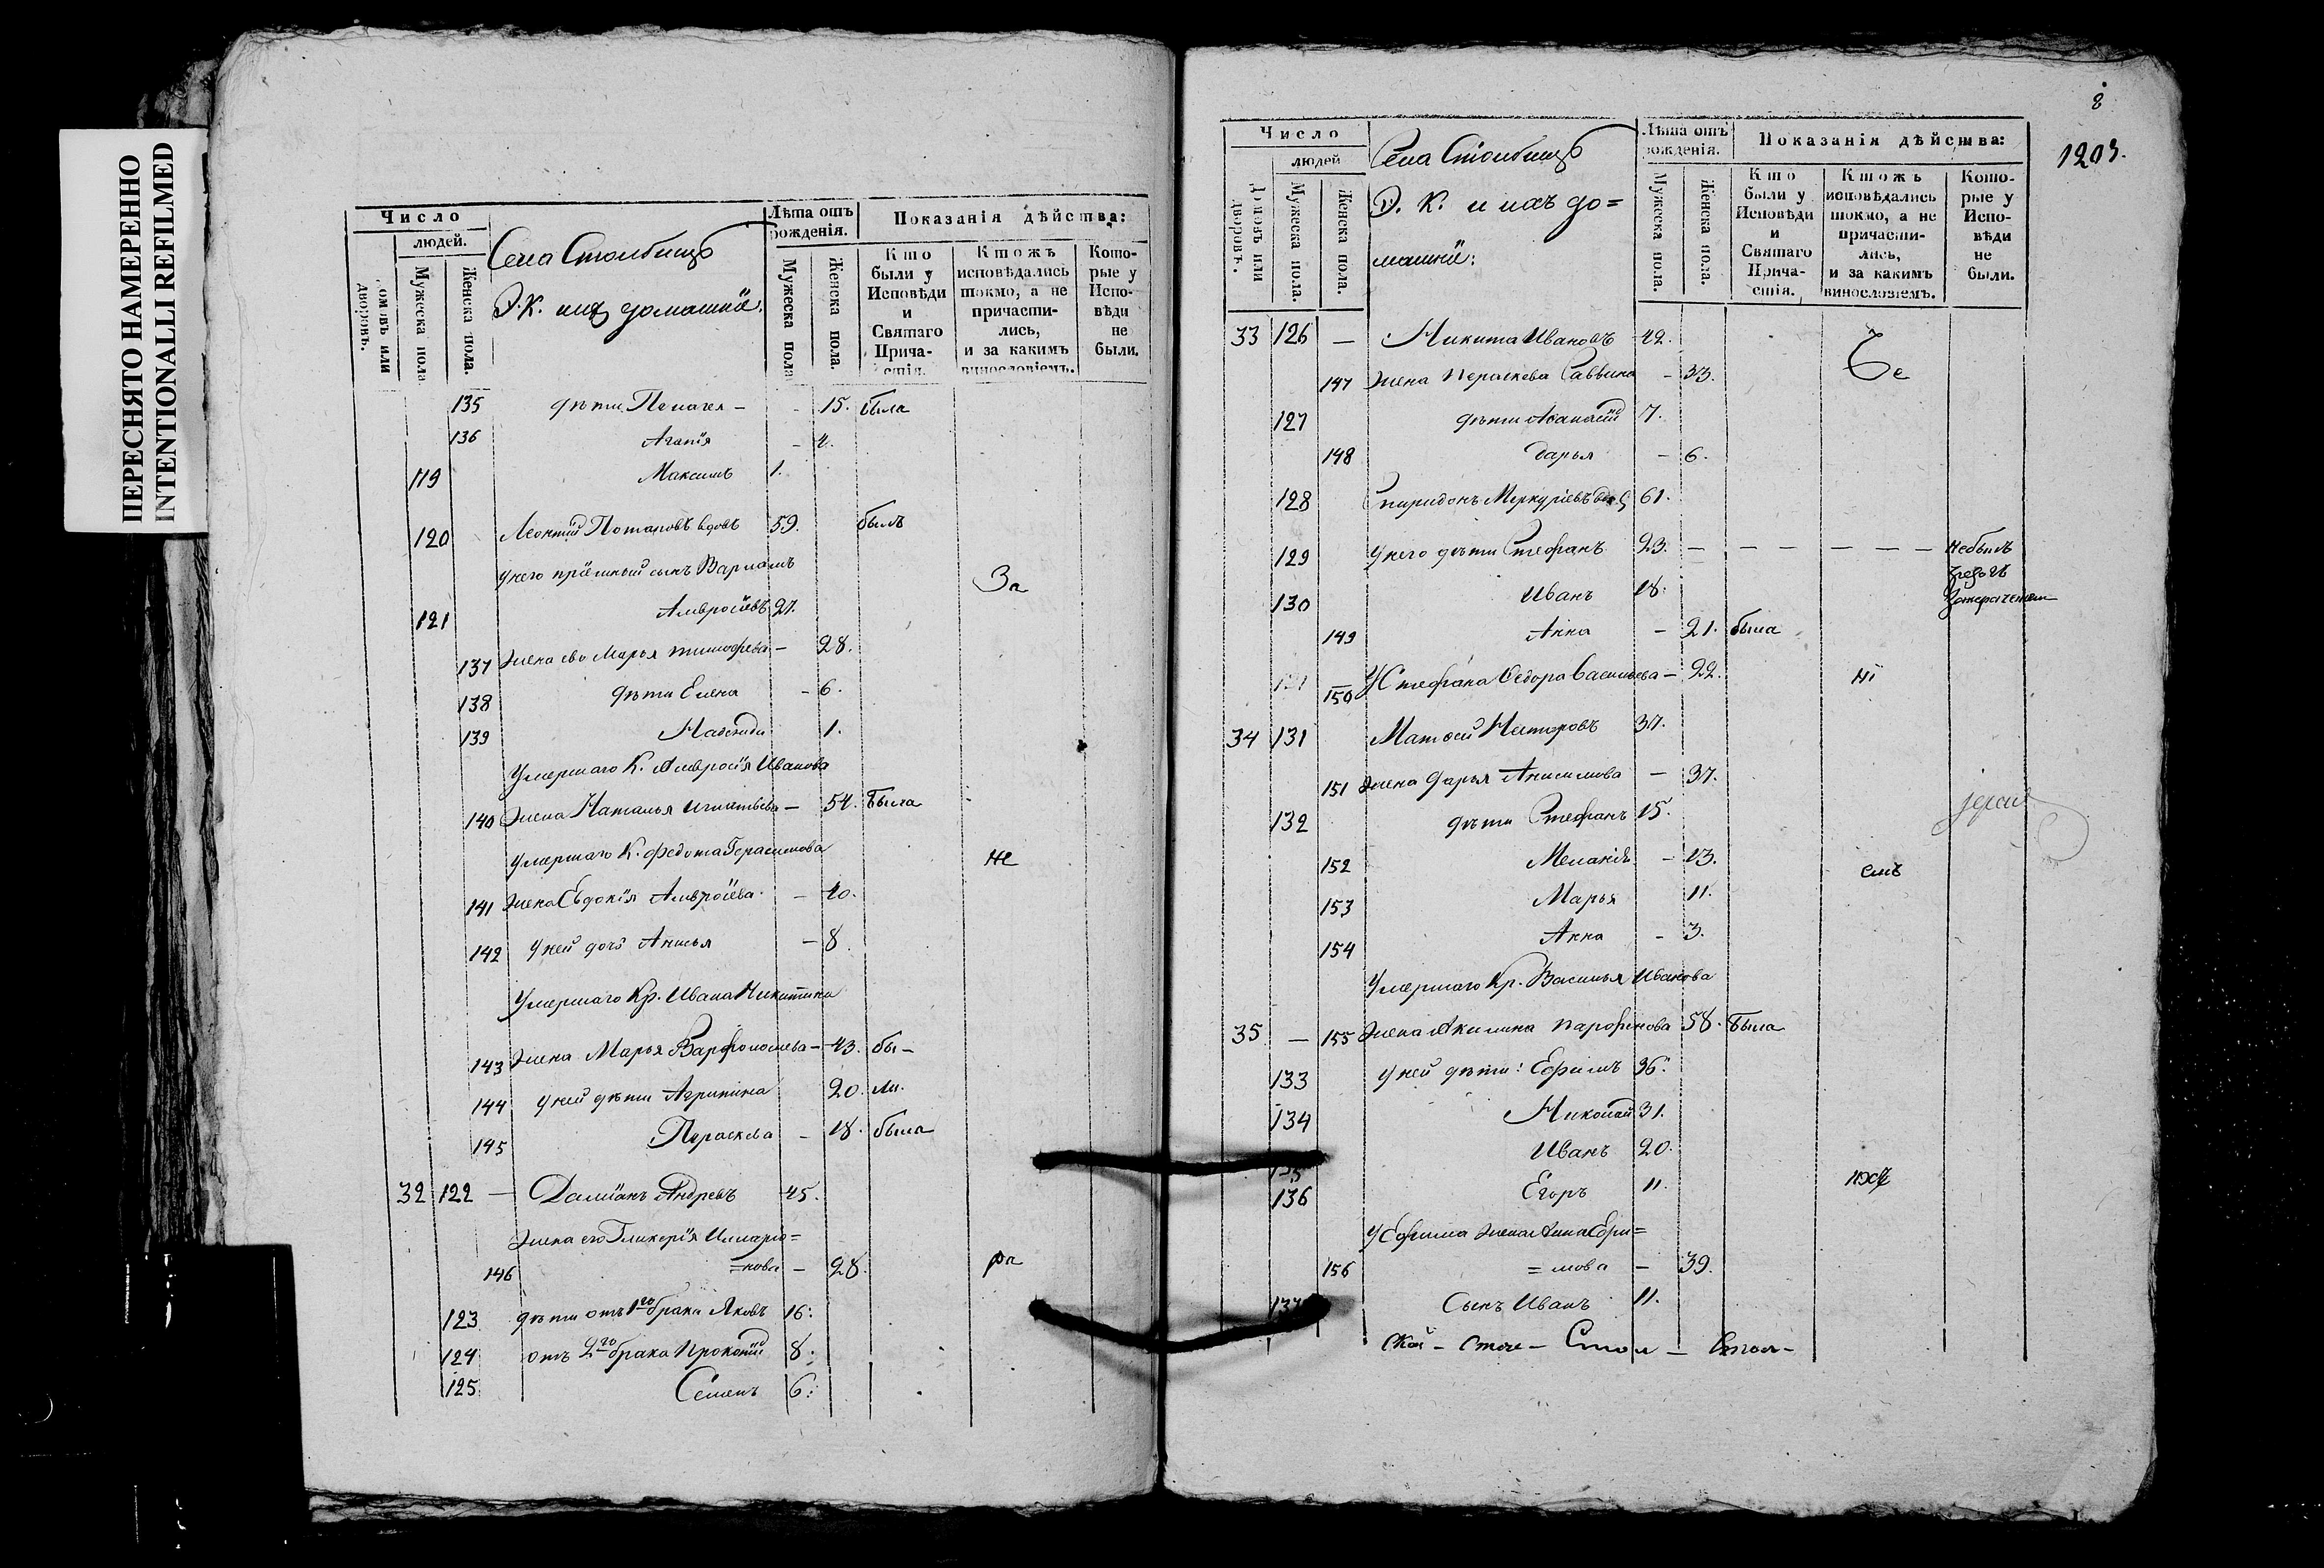 ПЕРЕСНЯТО НАМЕРЕННО
INTENTIONALLI REFILMED
Число
людей.
омовъ или дворовъ.
Мужеска пола
Женска пола.
Села Столбищъ
Э. К. ихъ домашніе.
Лѣта отъ рожденія.
Мужеска пола
Женска пола.
Показанія дѣйства:
Кто были у Исповѣди и Святаго Прича-стія.
Ктожъ исповѣдались токмо, а не причасти-лись, и за какимъ винословіемъ.
Кото-рые у Испо-вѣди не были.
135 дѣти Пелагея - - 15. была
136 Агапія - 4.
119 Максимъ 1.
120 Леонтій Потаповъ вдовъ 59. былъ
у него пріемный сынъ Варлаамъ
За
121 Амвросіевъ 27.
137 жена ево Марья тимофева - 28.
138 дѣти Елена - 6.
139 1.
Умершаго К. Амвросія Иванова
140 жена Наталья игнатьева - 54. была
Умершаго К. Федота Герасимова
не
141 жена Евдокія Амвросіева - 40.
142 у ней дочь Анисья - 8.
Умершаго Кр. Ивана Никитина
143 жена Марья Варфоломеева - 43. бы-
144 у ней дѣти Агрипина 20. ли.
145 Параскева - 18. была
32 122 — Даміанъ Андревъ 45.
жена его Гликерія Иларіо=
146 =нова - 28.
ра
123 дѣти отъ 1го брака Яковъ 16:
124 отъ 2го брака Прокопій 8:
125 Семенъ 6:
8
1203.
Число
людей
Домовъ или дворовъ.
Мужеска пола.
Женска пола.
Села Столбищъ
Э. К. и ихъ до=
машніе:
Лѣта отъ рожденія.
Мужеска пола.
Женска пола.
Показанія дѣйства:
Кто были у Исповѣди и Святаго Прича-стія.
Ктожъ исповѣдались токмо, а не причасти-лись, и за какимъ винословіемъ.
Кото-рые у Испо-вѣди не были.
33 126 — Никита Ивановъ 42.
147 жена Параскева Саввина - 33.
127 дѣти Аѳанасій 7.
148 Дарья - 6.
128 Спиридонъ Меркуріевъ 61.
129 у него дѣти Стефанъ 23. — — — — — — небылъ
130 Иванъ 18.
149 Анна - 21. была
150 У Стефана Ѳедора Васильева - 22.
ні
34 131 Матѳей Несторовъ 37.
151 жена Дарья Анисимова - 37.
132 дѣти Стефанъ 15.
152 Меланія - 13.
емъ
153 Марья 11.
154 Анна - 3.
Умершаго Кр. Василья Иванова
35 — 155 жена Акилина парфенова 58. была
133 у ней дѣти: Ефимъ 36:
134 Николай 31.
135 Иванъ 20.
136 Егоръ 11.
У Ефима жена Анна Ефи=
156 =мова - 39.
137 Сынъ Иванъ 11.